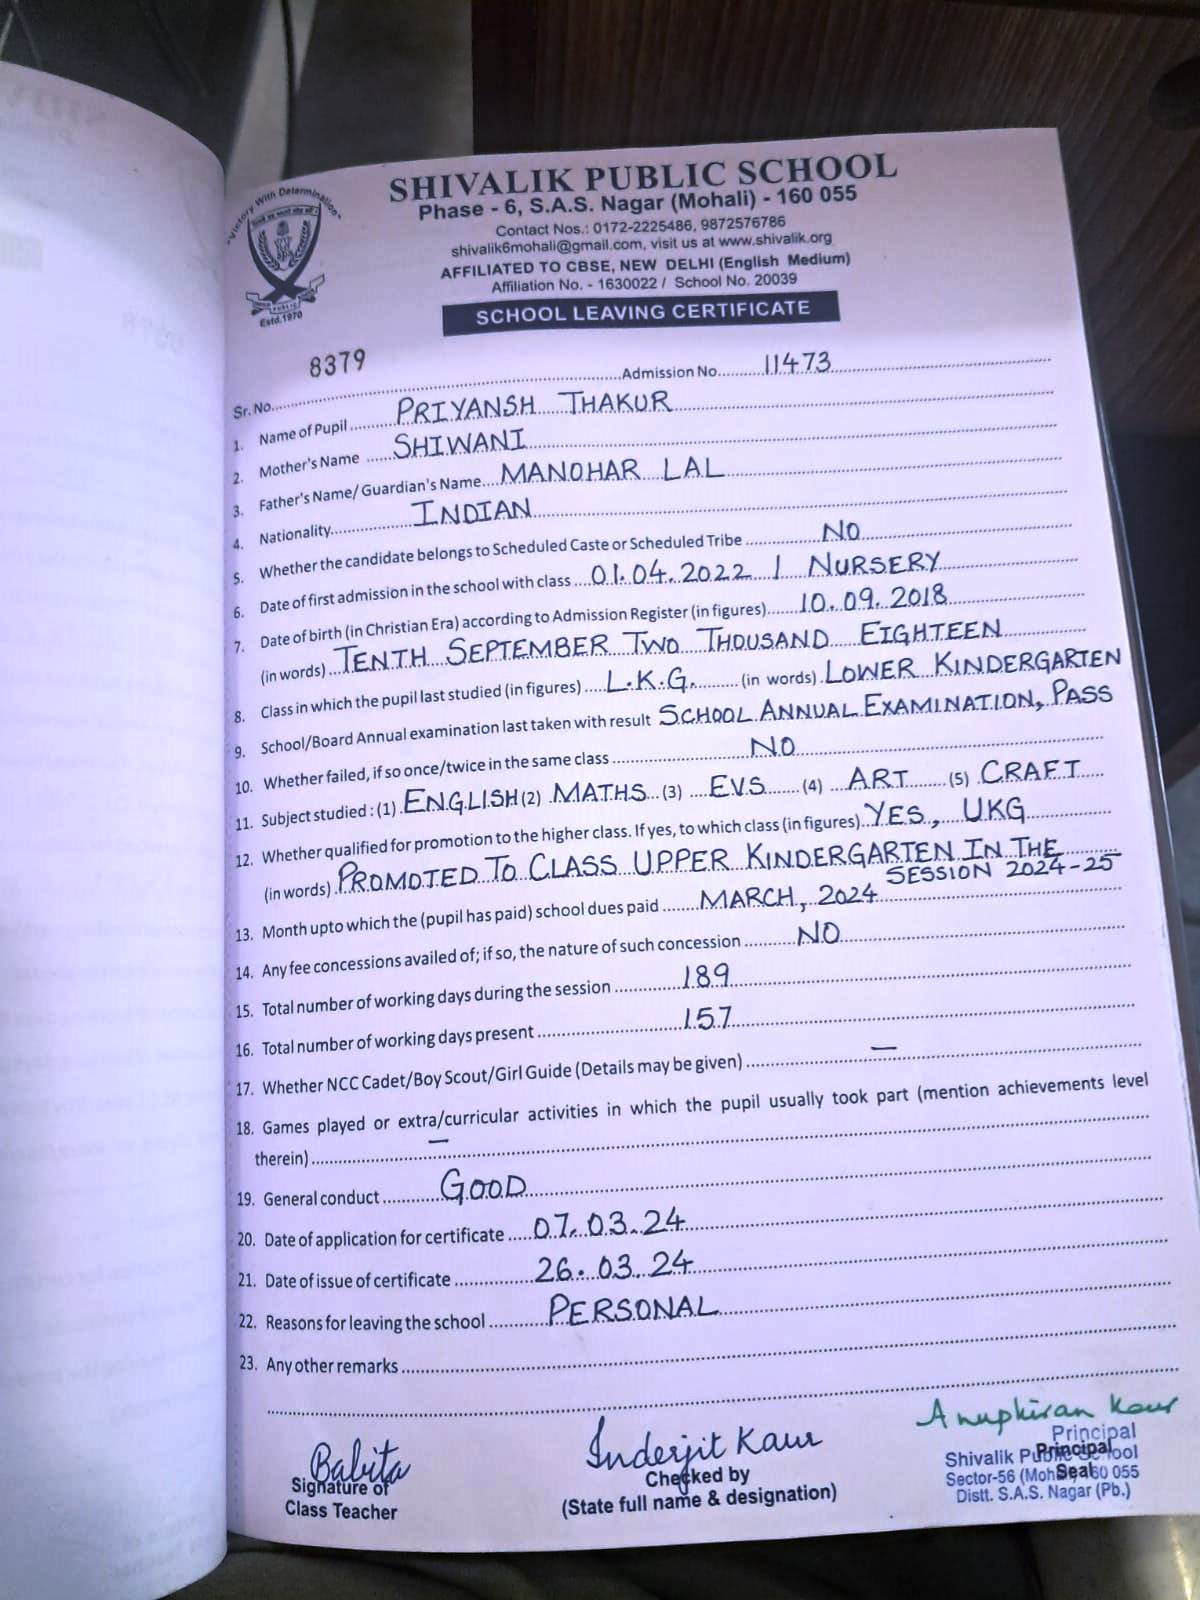 "Victory With Determination"
SPS
PUBLIC
Estd.1970
SHIVALIK PUBLIC SCHOOL
Phase - 6, S.A.S. Nagar (Mohali) - 160 055
Contact Nos.: 0172-2225486, 9872576786
shivalik6mohali@gmail.com, visit us at www.shivalik.org
AFFILIATED TO CBSE, NEW DELHI (English Medium)
Affiliation No. - 1630022 / School No. 20039
SCHOOL LEAVING CERTIFICATE
Sr. No. 8379 Admission No. 11473
1. Name of Pupil PRIYANSH THAKUR
2. Mother's Name SHIWANI
3. Father's Name/ Guardian's Name MANOHAR LAL
4. Nationality INDIAN
5. Whether the candidate belongs to Scheduled Caste or Scheduled Tribe NO
6. Date of first admission in the school with class 01.04.2022 / NURSERY
7. Date of birth (in Christian Era) according to Admission Register (in figures) 10.09.2018
(in words) TENTH SEPTEMBER TWO THOUSAND EIGHTEEN
8. Class in which the pupil last studied (in figures) L.K.G. (in words) LOWER KINDERGARTEN
9. School/Board Annual examination last taken with result SCHOOL ANNUAL EXAMINATION, PASS
10. Whether failed, if so once/twice in the same class NO
11. Subject studied : (1) ENGLISH (2) MATHS (3) EVS (4) ART (5) CRAFT
12. Whether qualified for promotion to the higher class. If yes, to which class (in figures) YES, UKG
(in words) PROMOTED TO CLASS UPPER KINDERGARTEN IN THE
SESSION 2024-25
13. Month upto which the (pupil has paid) school dues paid MARCH, 2024
14. Any fee concessions availed of; if so, the nature of such concession NO
15. Total number of working days during the session 189
16. Total number of working days present 157
17. Whether NCC Cadet/Boy Scout/Girl Guide (Details may be given) —
18. Games played or extra/curricular activities in which the pupil usually took part (mention achievements level
therein) —
19. General conduct GOOD
20. Date of application for certificate 07.03.24
21. Date of issue of certificate 26.03.24
22. Reasons for leaving the school PERSONAL
23. Any other remarks
Babita
Signature of
Class Teacher
Inderjit Kaur
Checked by
(State full name & designation)
Anupkiran Kaur
Principal
Principal
Seal
Shivalik Public School
Sector-56 (Moh 60 055
Distt. S.A.S. Nagar (Pb.)